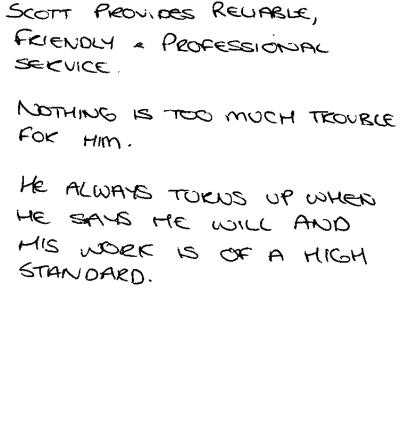 SCOTT PROVIDES RELIABLE,
FRIENDLY & PROFESSIONAL
SERVICE.
NOTHING IS TOO MUCH TROUBLE
FOR HIM.
HE ALWAYS TURNS UP WHEN
HE SAYS HE WILL AND
HIS WORK IS OF A HIGH
STANDARD.